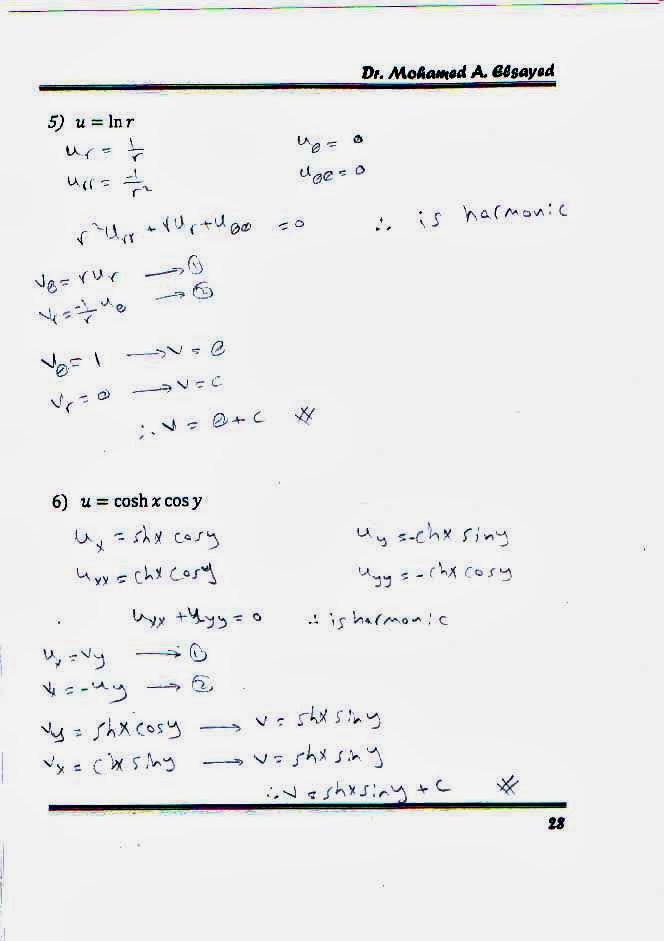 Dr. Mohamed A. Elsayed
5) u = ln r
u_r = 1/r    u_θ = 0
u_rr = -1/r²    u_θθ = 0
r²u_rr + ru_r + u_θθ = 0    ∴ is harmonic
v_θ = ru_r → ①
v_r = -1/r u_θ → ②
v_θ = 1 → v = θ
v_r = 0 → v = c
∴ v = θ + c #
6) u = cosh x cos y
u_x = shx cosy    u_y = -chx siny
u_xx = chx cosy    u_yy = -chx cosy
u_xx + u_yy = 0    ∴ is harmonic
u_x = v_y → ①
v_x = -u_y → ②
v_y = shx cosy → v = shx siny
v_x = chx siny → v = shx siny
∴ v = shx siny + c #
28